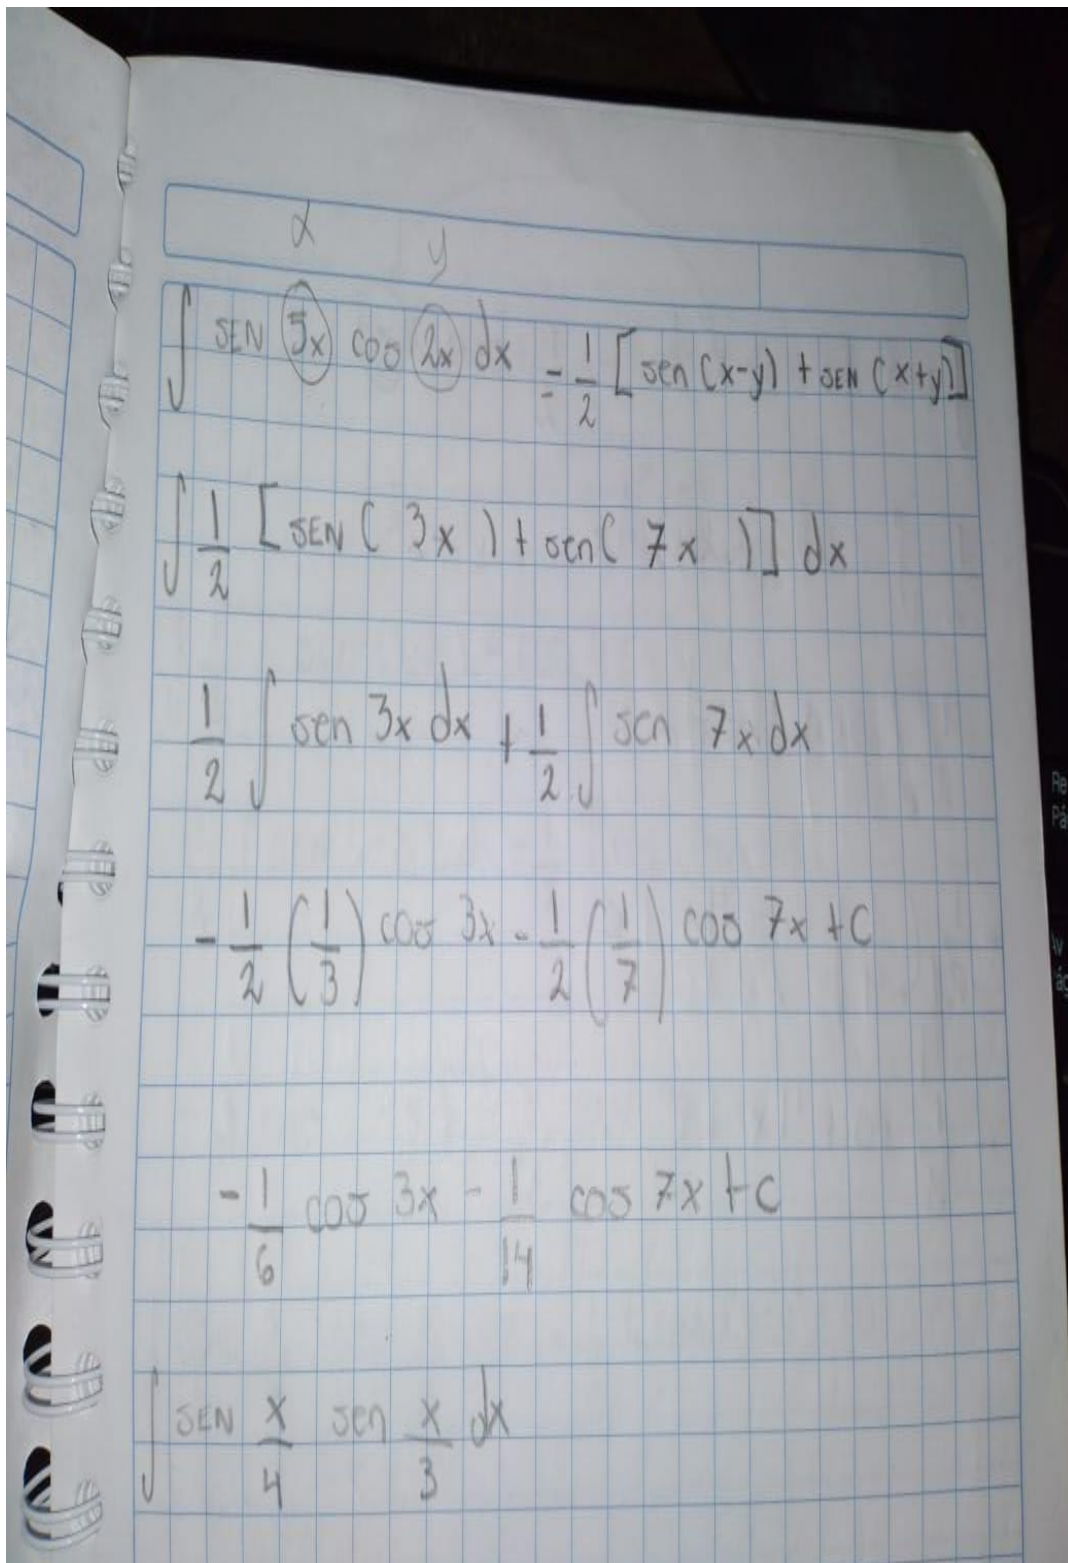 x y
∫ SEN 5x cos 2x dx = 1/2 [sen(x-y) + SEN (x+y)]
∫ 1/2 [SEN( 3x ) + sen( 7x )] dx
1/2 ∫ sen 3x dx + 1/2 ∫ sen 7x dx
- 1/2 (1/3) cos 3x - 1/2 (1/7) cos 7x + C
- 1/6 cos 3x - 1/14 cos 7x + C
∫ SEN x/4 sen x/3 dx